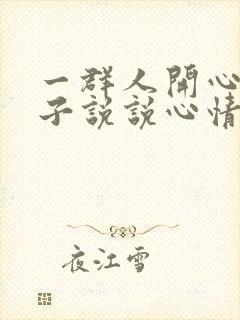 一群人開心
子說說心情
夜江雪